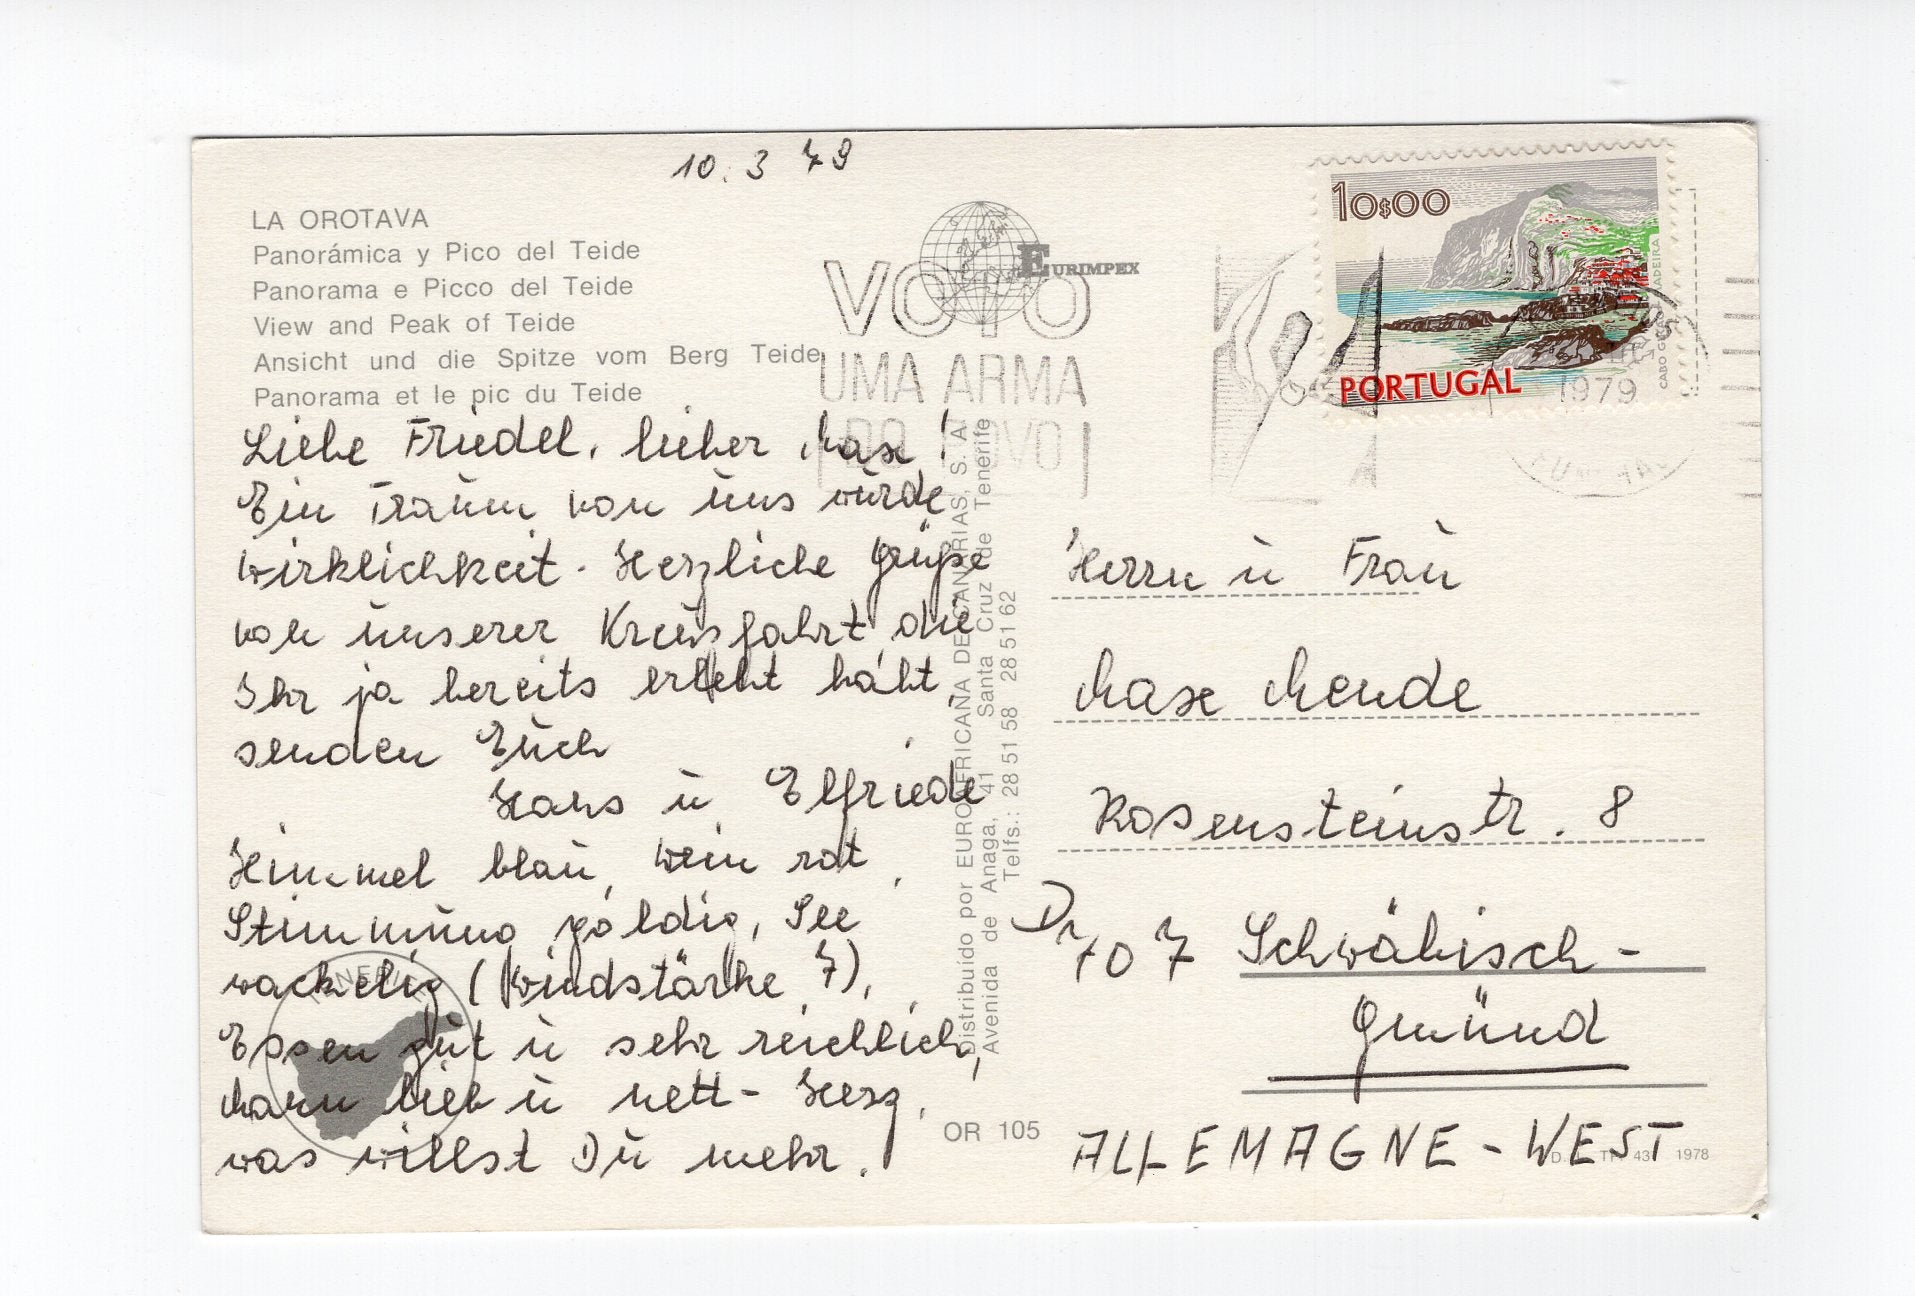 10. 3 79
LA OROTAVA
Panorámica y Pico del Teide
Panorama e Picco del Teide
View and Peak of Teide
Ansicht und die Spitze vom Berg Teide
Panorama et le pic du Teide
Liebe Friedel, lieber Max!
Ein Traum von uns wurde
Wirklichkeit. Herzliche Grüße
von unserer Kreuzfahrt, die
Ihr ja bereits erlebt habt,
senden Euch
Hans u Elfriede
Himmel blau, Wein rot,
Stimmung goldig, See
wackelig (Windstärke 7),
Essen gut u sehr reichlich,
Mann lieb u nett - Herz,
was willst Du mehr.
TENERIFE
EURIMPEX
VOTO
UMA ARMA
DO POVO
Distribuído por EUROAFRICANA DE CANARIAS, S. A.
Avenida de Anaga, 41 Santa Cruz de Tenerife
Telfs.: 28 51 58 28 51 62
OR 105
10$00
PORTUGAL
CABO GIRÃO MADEIRA
1979
Herrn u Frau
Max Mende
Rosensteinstr. 8
D 707 Schwäbisch-
Gmünd
ALLEMAGNE-WEST
1978